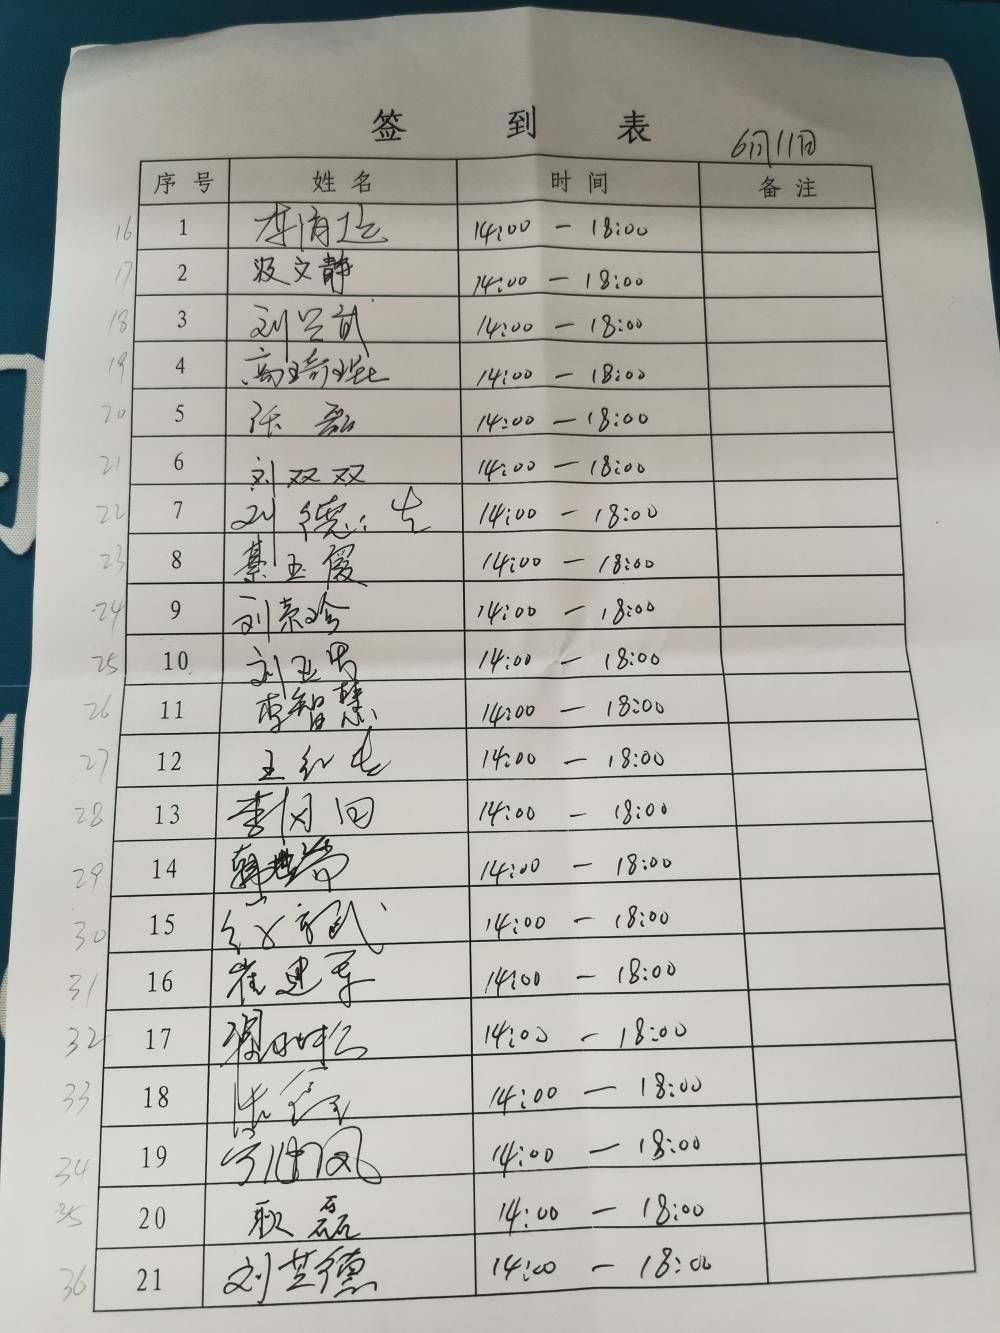 签 到 表
6月11日
序 号 姓 名 时 间 备 注
16 1 14:00 — 18:00
17 2 汲文静 14:00 — 18:00
18 3 刘兴武 14:00 — 18:00
19 4 高琦琨 14:00 — 18:00
20 5 张磊 14:00 — 18:00
21 6 刘双双 14:00 — 18:00
22 7 刘德志 14:00 — 18:00
23 8 綦玉爱 14:00 — 18:00
24 9 刘京珍 14:00 — 18:00
25 10 14:00 — 18:00
26 11 李智慧 14:00 — 18:00
27 12 王红 14:00 — 18:00
28 13 李 14:00 — 18:00
29 14 韩 14:00 — 18:00
30 15 14:00 — 18:00
31 16 崔建军 14:00 — 18:00
32 17 14:00 — 18:00
33 18 14:00 — 18:00
34 19 14:00 — 18:00
35 20 耿磊 14:00 — 18:00
36 21 刘芝德 14:00 — 18:00